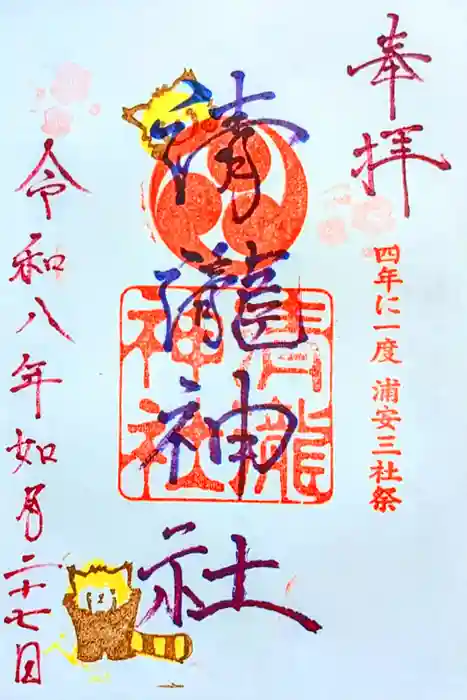 奉拝
四年に一度 浦安三社祭
清瀧神社
清龍神社
令和八年如月二十七日